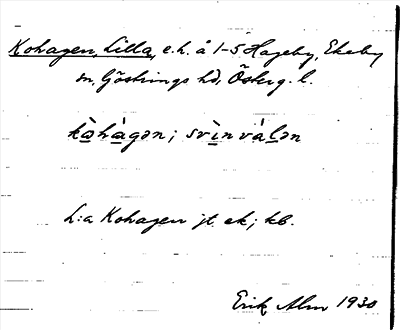 Kohagen, Lilla, e.h. å 1-5 Hageby, Ekeby
sn, Göstrings hd, Österg. l.
kàhágən; svìnválən
L:a Kohagen jt. ek; kb.
Erik Alm 1930